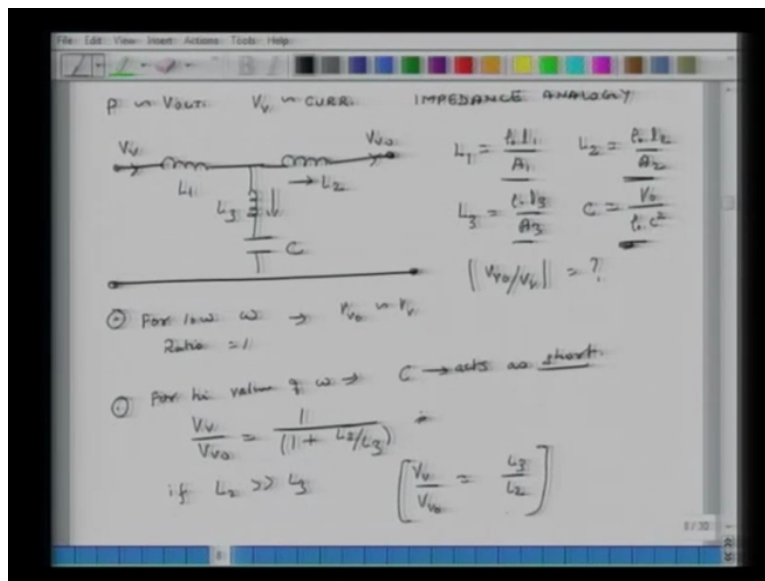 File Edit View Insert Actions Tools Help
P ~ VOLT. V_V ~ CURR. IMPEDANCE ANALOGY
V_V V_VO
L_1 L_2
L_3
C
L_1 = ρ_0 l_1 / A_1 L_2 = ρ_0 l_2 / A_2
L_3 = ρ_0 l_3 / A_3 C = V_0 / ρ_0 c^2
|V_VO/V_V| = ?
For low ω → V_VO ~ V_V
Ratio = 1
For hi value of ω → C → acts as short.
V_V / V_VO = 1 / (1 + L_2/L_3)
if L_2 >> L_3 [V_V / V_VO = L_3 / L_2]
8 / 30
8